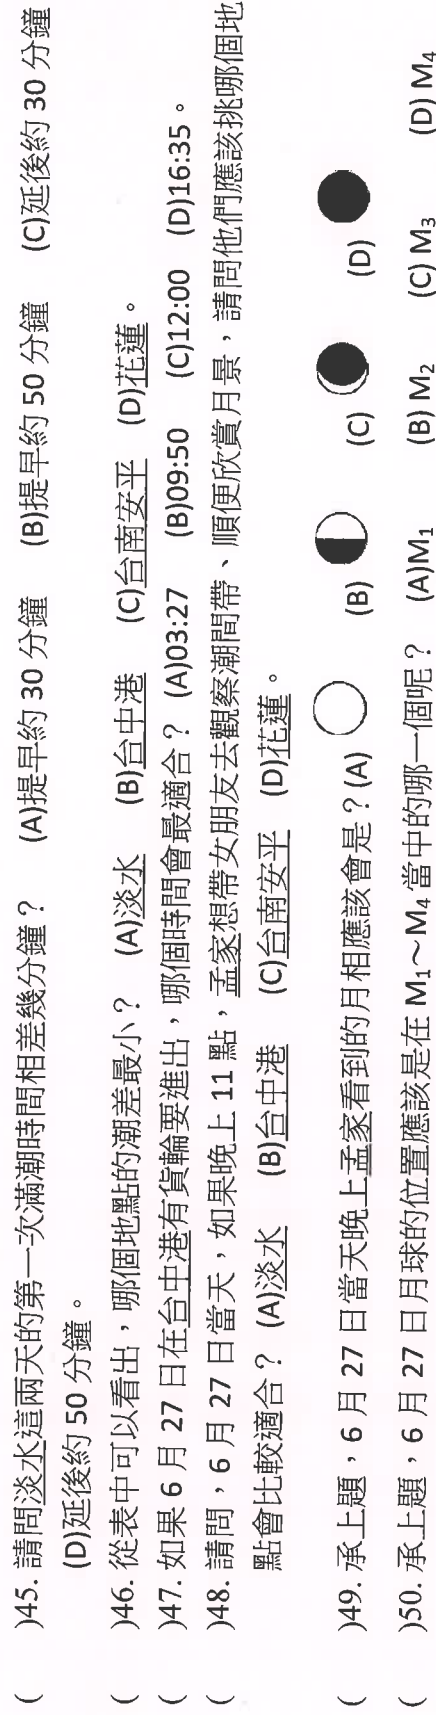 (　　)45. 請問淡水這兩天的第一次滿潮時間相差幾分鐘？　(A)提早約 30 分鐘　(B)提早約 50 分鐘　(C)延後約 30 分鐘
(D)延後約 50 分鐘。
(　　)46. 從表中可以看出，哪個地點的潮差最小？　(A)淡水　(B)台中港　(C)台南安平　(D)花蓮。
(　　)47. 如果 6 月 27 日在台中港有貨輪要進出，哪個時間會最適合？ (A)03:27　(B)09:50　(C)12:00　(D)16:35。
(　　)48. 請問，6 月 27 日當天，如果晚上 11 點，孟家想帶女朋友去觀察潮間帶、順便欣賞月景，請問他們應該挑哪個地
點會比較適合？ (A)淡水　(B)台中港　(C)台南安平　(D)花蓮。
(　　)49. 承上題，6 月 27 日當天晚上孟家看到的月相應該會是？(A)　(B)　(C)　(D)
(　　)50. 承上題，6 月 27 日月球的位置應該是在 M₁～M₄ 當中的哪一個呢？　(A)M₁　(B) M₂　(C) M₃　(D) M₄